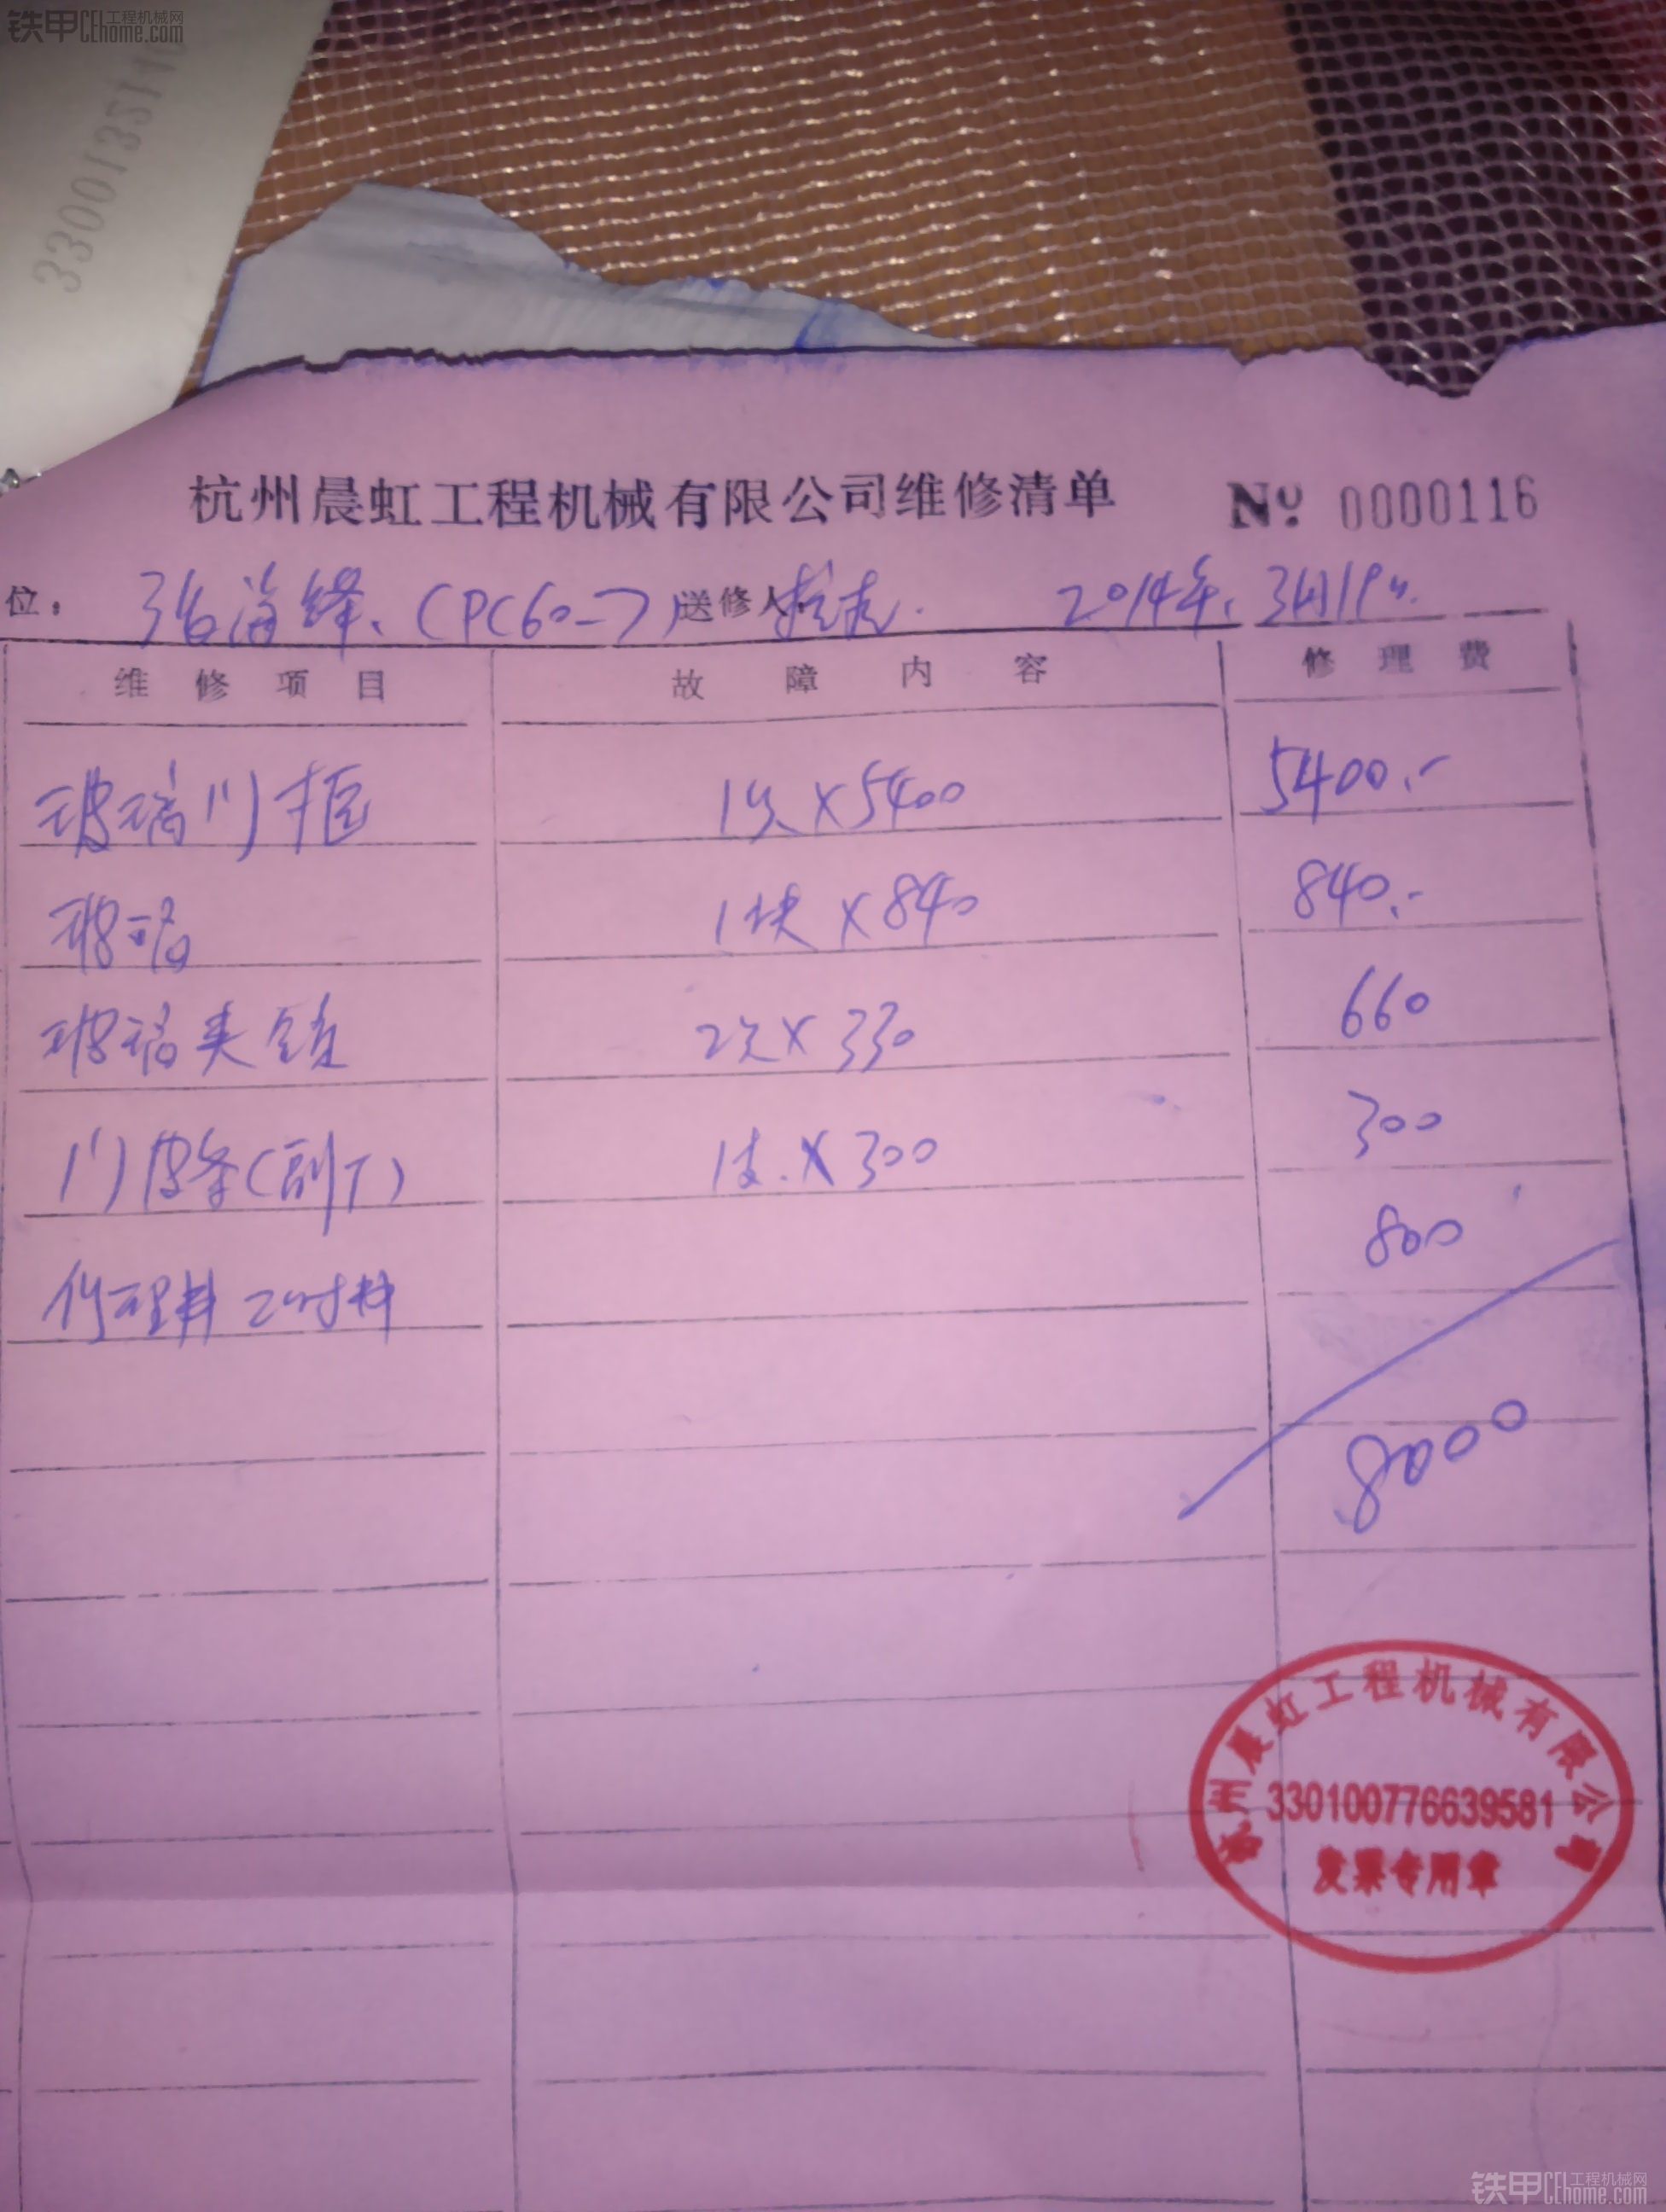 铁甲 CEhome.com 工程机械网
杭州晨虹工程机械有限公司维修清单 No. 0000116
位： 张海锋、(PC60-7) 送修人： 2014年、3月19日
维修项目 故障内容 修理费
玻璃门框 1只×5400 5400.-
玻璃 1块×840 840.-
玻璃夹 2只×330 660
门皮条(副厂) 1支.×300 300
修理费 工时费 800
8000
杭州晨虹工程机械有限公司
330100776639581
发票专用章
铁甲 CEhome.com 工程机械网